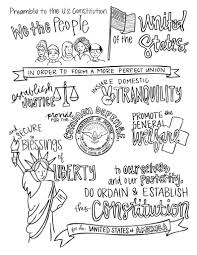 Preamble to the U.S. Constitution
We the People
of the United States,
IN ORDER TO FORM A MORE PERFECT UNION
establish JUSTICE
INSURE DOMESTIC TRANQUILITY
PROVIDE FOR THE
COMMON DEFENSE,
PROMOTE THE GENERAL welfare
and SECURE the Blessings of LIBERTY
to ourselves and our posterity,
DO ORDAIN & ESTABLISH
this Constitution
for the UNITED STATES of AMERICA